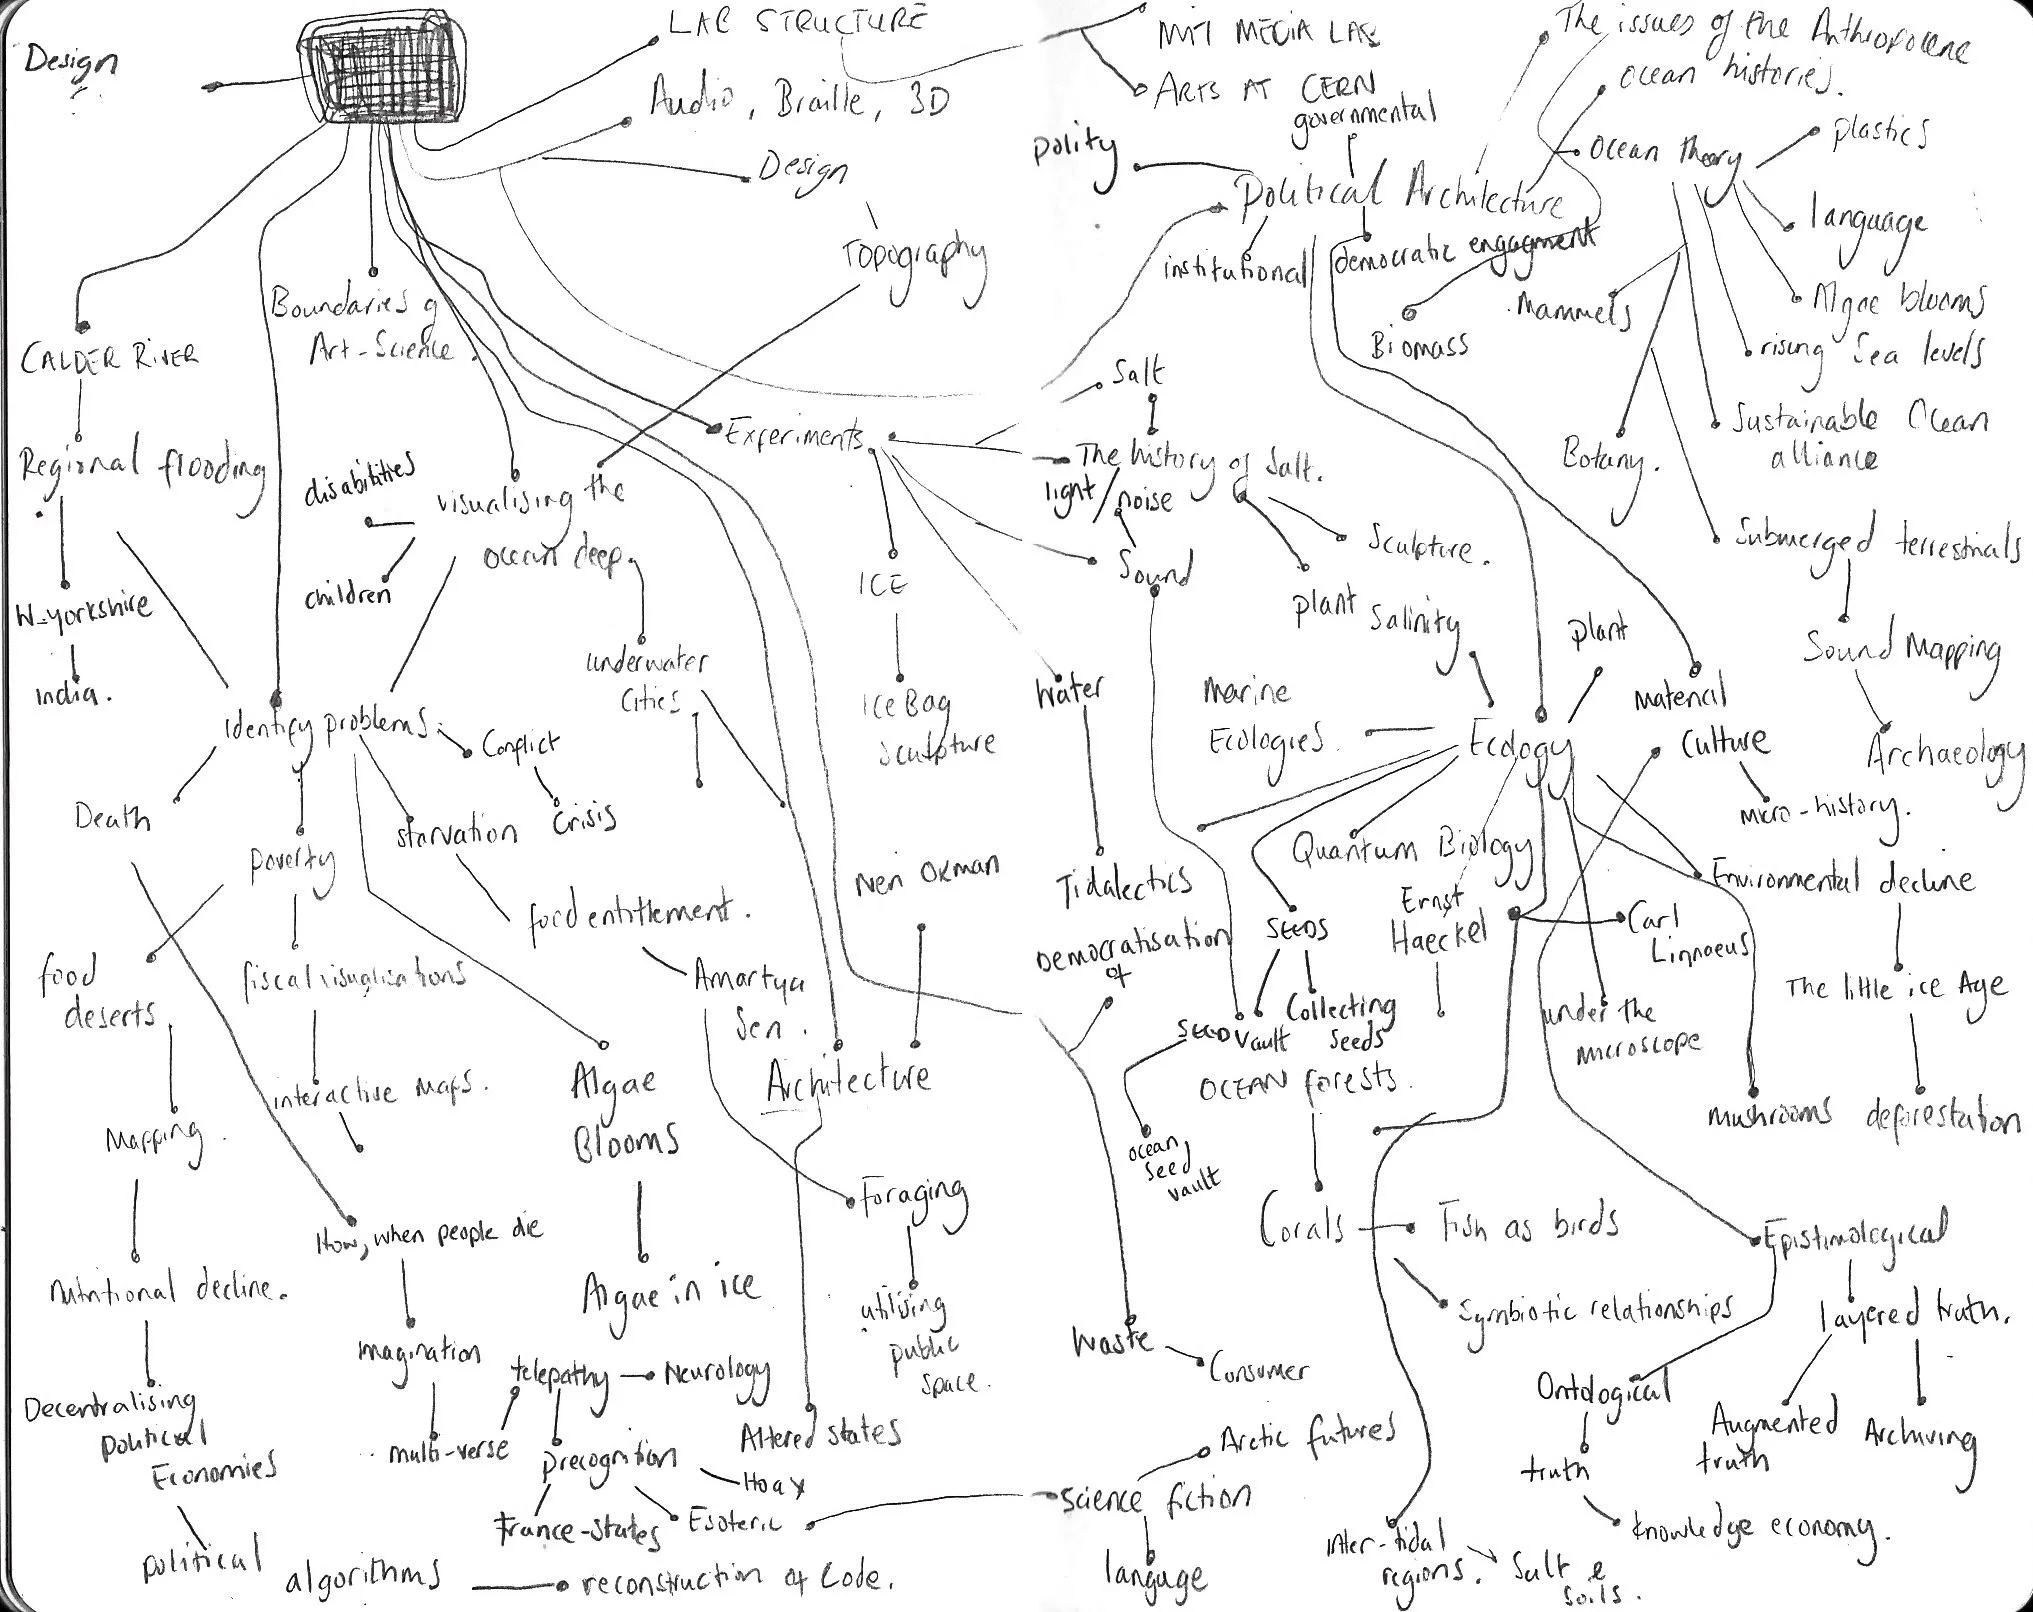 Design
LAB STRUCTURE
Audio, Braille, 3D
Design
Topography
Boundaries of
Art-Science.
CALDER RIVER
Regional flooding
W-yorkshire
india.
disabilities
children
visualising the
ocean deep.
underwater
cities
Experiments
ICE
Ice Bag
Sculpture
Identify problems.
Conflict
Crisis
Death
poverty
starvation
food entitlement.
Amartya
Sen.
Neri Oxman
food
deserts
fiscal visualisations
interactive maps.
Mapping.
Algae
Blooms
Architecture
Foraging
utilising
public
space.
How, when people die
Algae in ice
Nutritional decline.
imagination
telepathy
Neurology
multi-verse
precognition
Hoax
Altered states
Trance-states
Esoteric
Decentralising
political
Economies
political
algorithms
reconstruction of Code.
MIT MEDIA LAB
ARTS AT CERN
governmental
polity
Political Architecture
institutional
democratic engagment
Biomass
The issues of the Anthropocene
ocean histories.
Ocean theory
plastics
language
Mammels
Algae blooms
rising Sea levels
Sustainable Ocean
alliance
Botany.
Submerged terrestrials
Sound Mapping
Archaeology
Salt
The history of Salt.
light/noise
Sound
Sculpture.
plant
Salinity
plant
Material
Culture
micro-history.
Water
Marine
Ecologies.
Ecology
Quantum Biology
Tidalectics
Democratisation
of
SEEDS
Ernst
Haeckel
Carl
Linnaeus
Environmental decline
The little ice Age
SEED Vault
Collecting
Seeds
under the
microscope
OCEAN forests.
mushrooms
deforestation
ocean
seed
vault
Corals
Fish as birds
Symbiotic relationships
Epistimological
layered truth.
Waste
Consumer
Ontological
Augmented
truth
Archiving
Arctic futures
truth
Science fiction
knowledge economy.
langage
inter-tidal
regions.
Salt &
Soils.